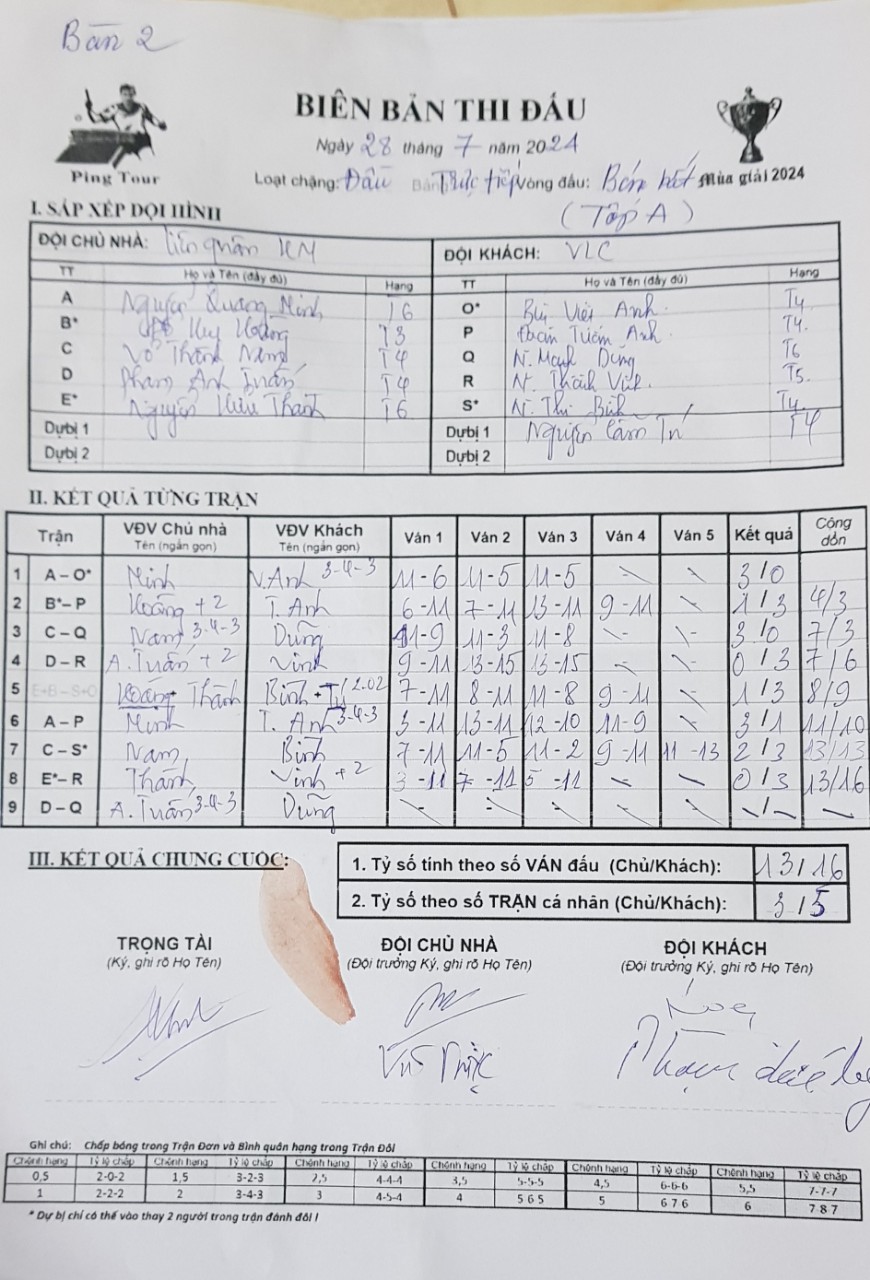 Bàn 2
BIÊN BẢN THI ĐẤU
Ngày 28 tháng 7 năm 2024
Ping Tour
Loại chặng: Đấu Trực tiếp Vòng đấu: Bán kết Mùa giải 2024
(Tốp A)
I. SẮP XẾP ĐỘI HÌNH
ĐỘI CHỦ NHÀ: Liên quân ĐỘI KHÁCH: VLC
TT Họ và Tên (đầy đủ) Hạng TT Họ và Tên (đầy đủ) Hạng
A Nguyễn Quang Minh T6 O* Bùi Việt Anh T4
B* Huy Hoàng T3 P Tuấn Anh T4
C Võ Thành Nam T4 Q N. Mạnh Dũng T6
D Phạm Anh Tuấn T4 R N. Thành Vinh T5
E* Nguyễn Hữu Thành T6 S* N. Thi Bình T4
Dự bị 1 Dự bị 1 Nguyễn Cẩm Tú T4
Dự bị 2 Dự bị 2
II. KẾT QUẢ TỪNG TRẬN
Trận VĐV Chủ nhà Tên (ngắn gọn) VĐV Khách Tên (ngắn gọn) Ván 1 Ván 2 Ván 3 Ván 4 Ván 5 Kết quả Cộng dồn
1 A – O* Minh V.Anh 3-4-3 11-6 11-5 11-5 - - 3/0
2 B*– P Hoàng +2 T. Anh 6-11 7-11 13-11 9-11 - 1/3 4/3
3 C – Q Nam 3-4-3 Dũng 11-9 11-3 11-8 - - 3/0 7/3
4 D – R A.Tuấn +2 Vinh 9-11 13-15 13-15 - - 0/3 7/6
5 E+B – S+O Hoàng+ Thành Bình + Tú 2.02 7-11 8-11 11-8 9-11 - 1/3 8/9
6 A – P Minh T. Anh 3-4-3 3-11 13-11 12-10 11-9 - 3/1 11/10
7 C – S* Nam Bình 7-11 11-5 11-2 9-11 11-13 2/3 13/13
8 E*– R Thành Vinh +2 3-11 7-11 5-11 - - 0/3 13/16
9 D – Q A.Tuấn 3-4-3 Dũng - - - - - -/- -
III. KẾT QUẢ CHUNG CUỘC:
1. Tỷ số tính theo số VÁN đấu (Chủ/Khách): 13/16
2. Tỷ số theo số TRẬN cá nhân (Chủ/Khách): 3/5
TRỌNG TÀI ĐỘI CHỦ NHÀ ĐỘI KHÁCH
(Ký, ghi rõ Họ Tên) (Đội trưởng Ký, ghi rõ Họ Tên) (Đội trưởng Ký, ghi rõ Họ Tên)
Phạm
Ghi chú: Chấp bóng trong Trận Đơn và Bình quân hạng trong Trận Đôi
Chênh hạng Tỷ lệ chấp Chênh hạng Tỷ lệ chấp Chênh hạng Tỷ lệ chấp Chênh hạng Tỷ lệ chấp Chênh hạng Tỷ lệ chấp Chênh hạng Tỷ lệ chấp
0,5 2-0-2 1,5 3-2-3 2,5 4-4-4 3,5 5-5-5 4,5 6-6-6 5,5 7-7-7
1 2-2-2 2 3-4-3 3 4-5-4 4 5 6 5 5 6 7 6 6 7 8 7
* Dự bị chỉ có thể vào thay 2 người trong trận đánh đôi !